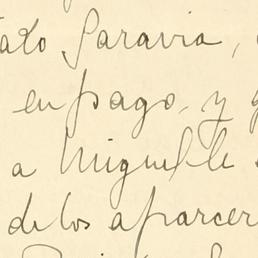 Saravia,
en pago, y
a Miguel le
de los aparcer